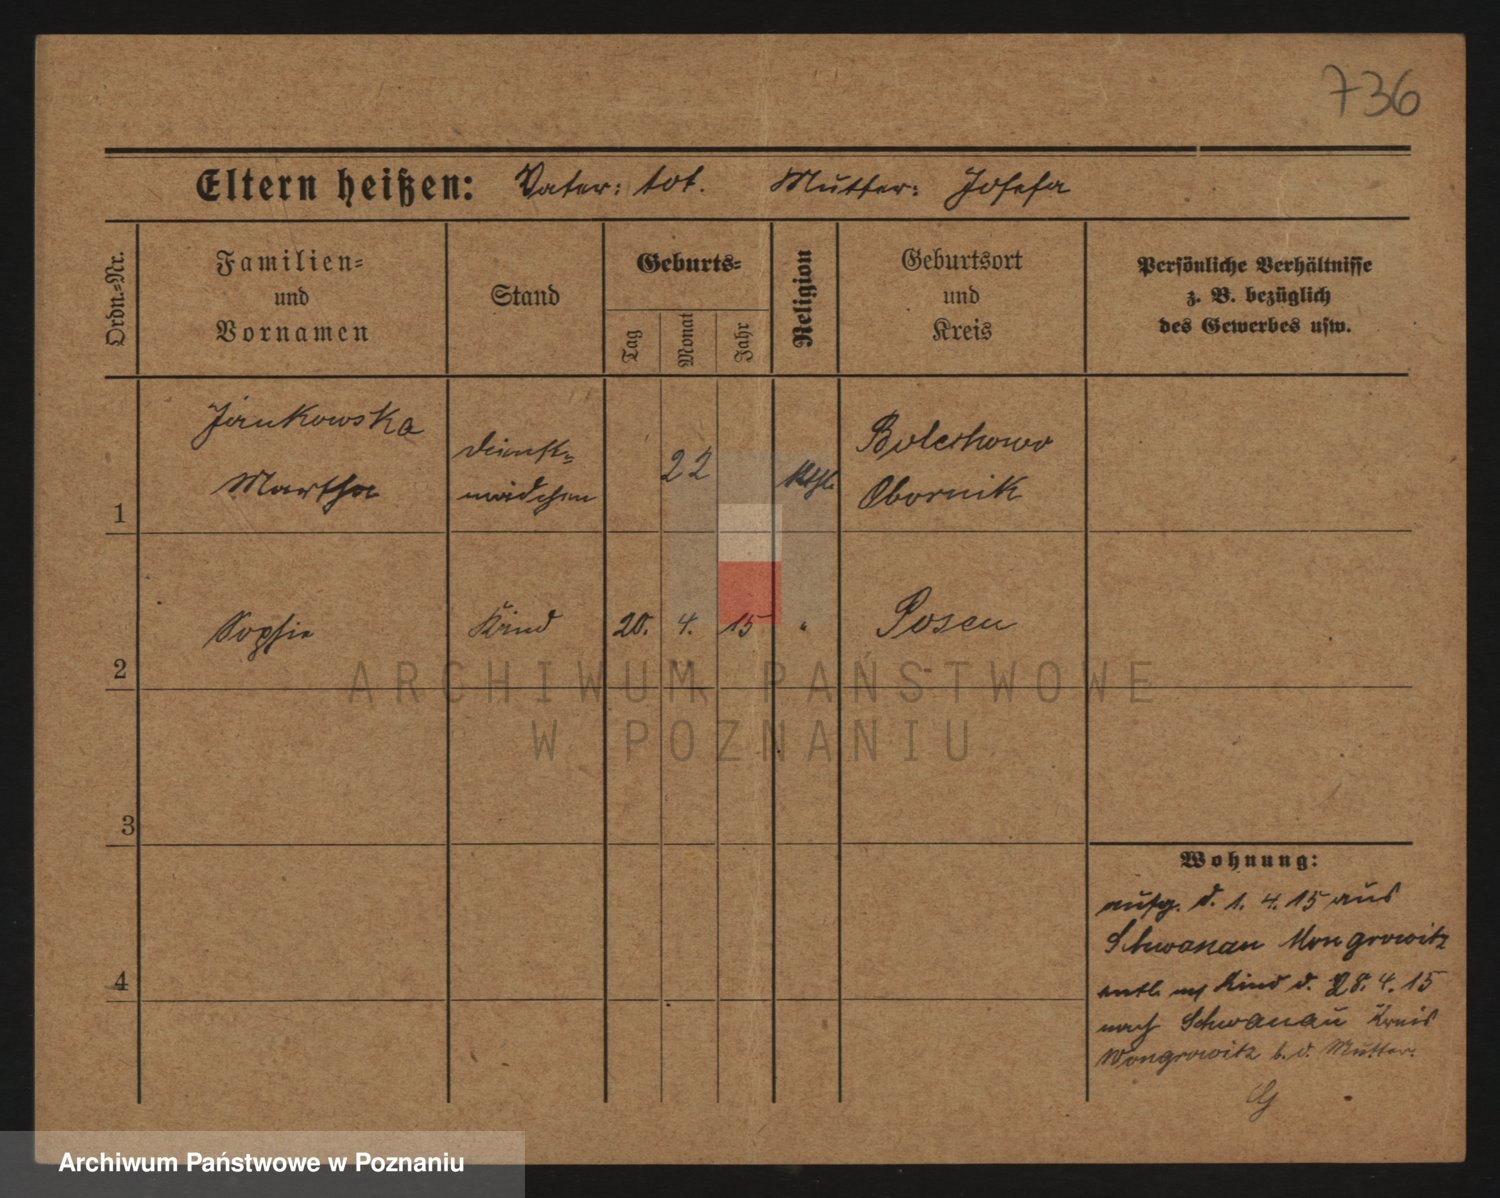 736
Eltern heißen: Vater: tot. Mutter: Josefa
Ordn.-Nr.
Familien-
und
Vornamen
Stand
Geburts-
Tag
Monat
Jahr
Religion
Geburtsort
und
Kreis
Persönliche Verhältnisse
z. B. bezüglich
des Gewerbes usw.
1
Jankowska
Martha
Dienst-
mädchen
22
kthl.
Bolechowo
Obornik
2
Sophie
Kind
20. 4. 15
"
Posen
3
4
Wohnung:
aufg. d. 1. 4. 15 aus
Schwanau Wongrowitz
entl. Kind d. 28. 4. 15
nach Schwanau Kreis
Wongrowitz b. d. Mutter.
ARCHIWUM PAŃSTWOWE
W POZNANIU
Archiwum Państwowe w Poznaniu